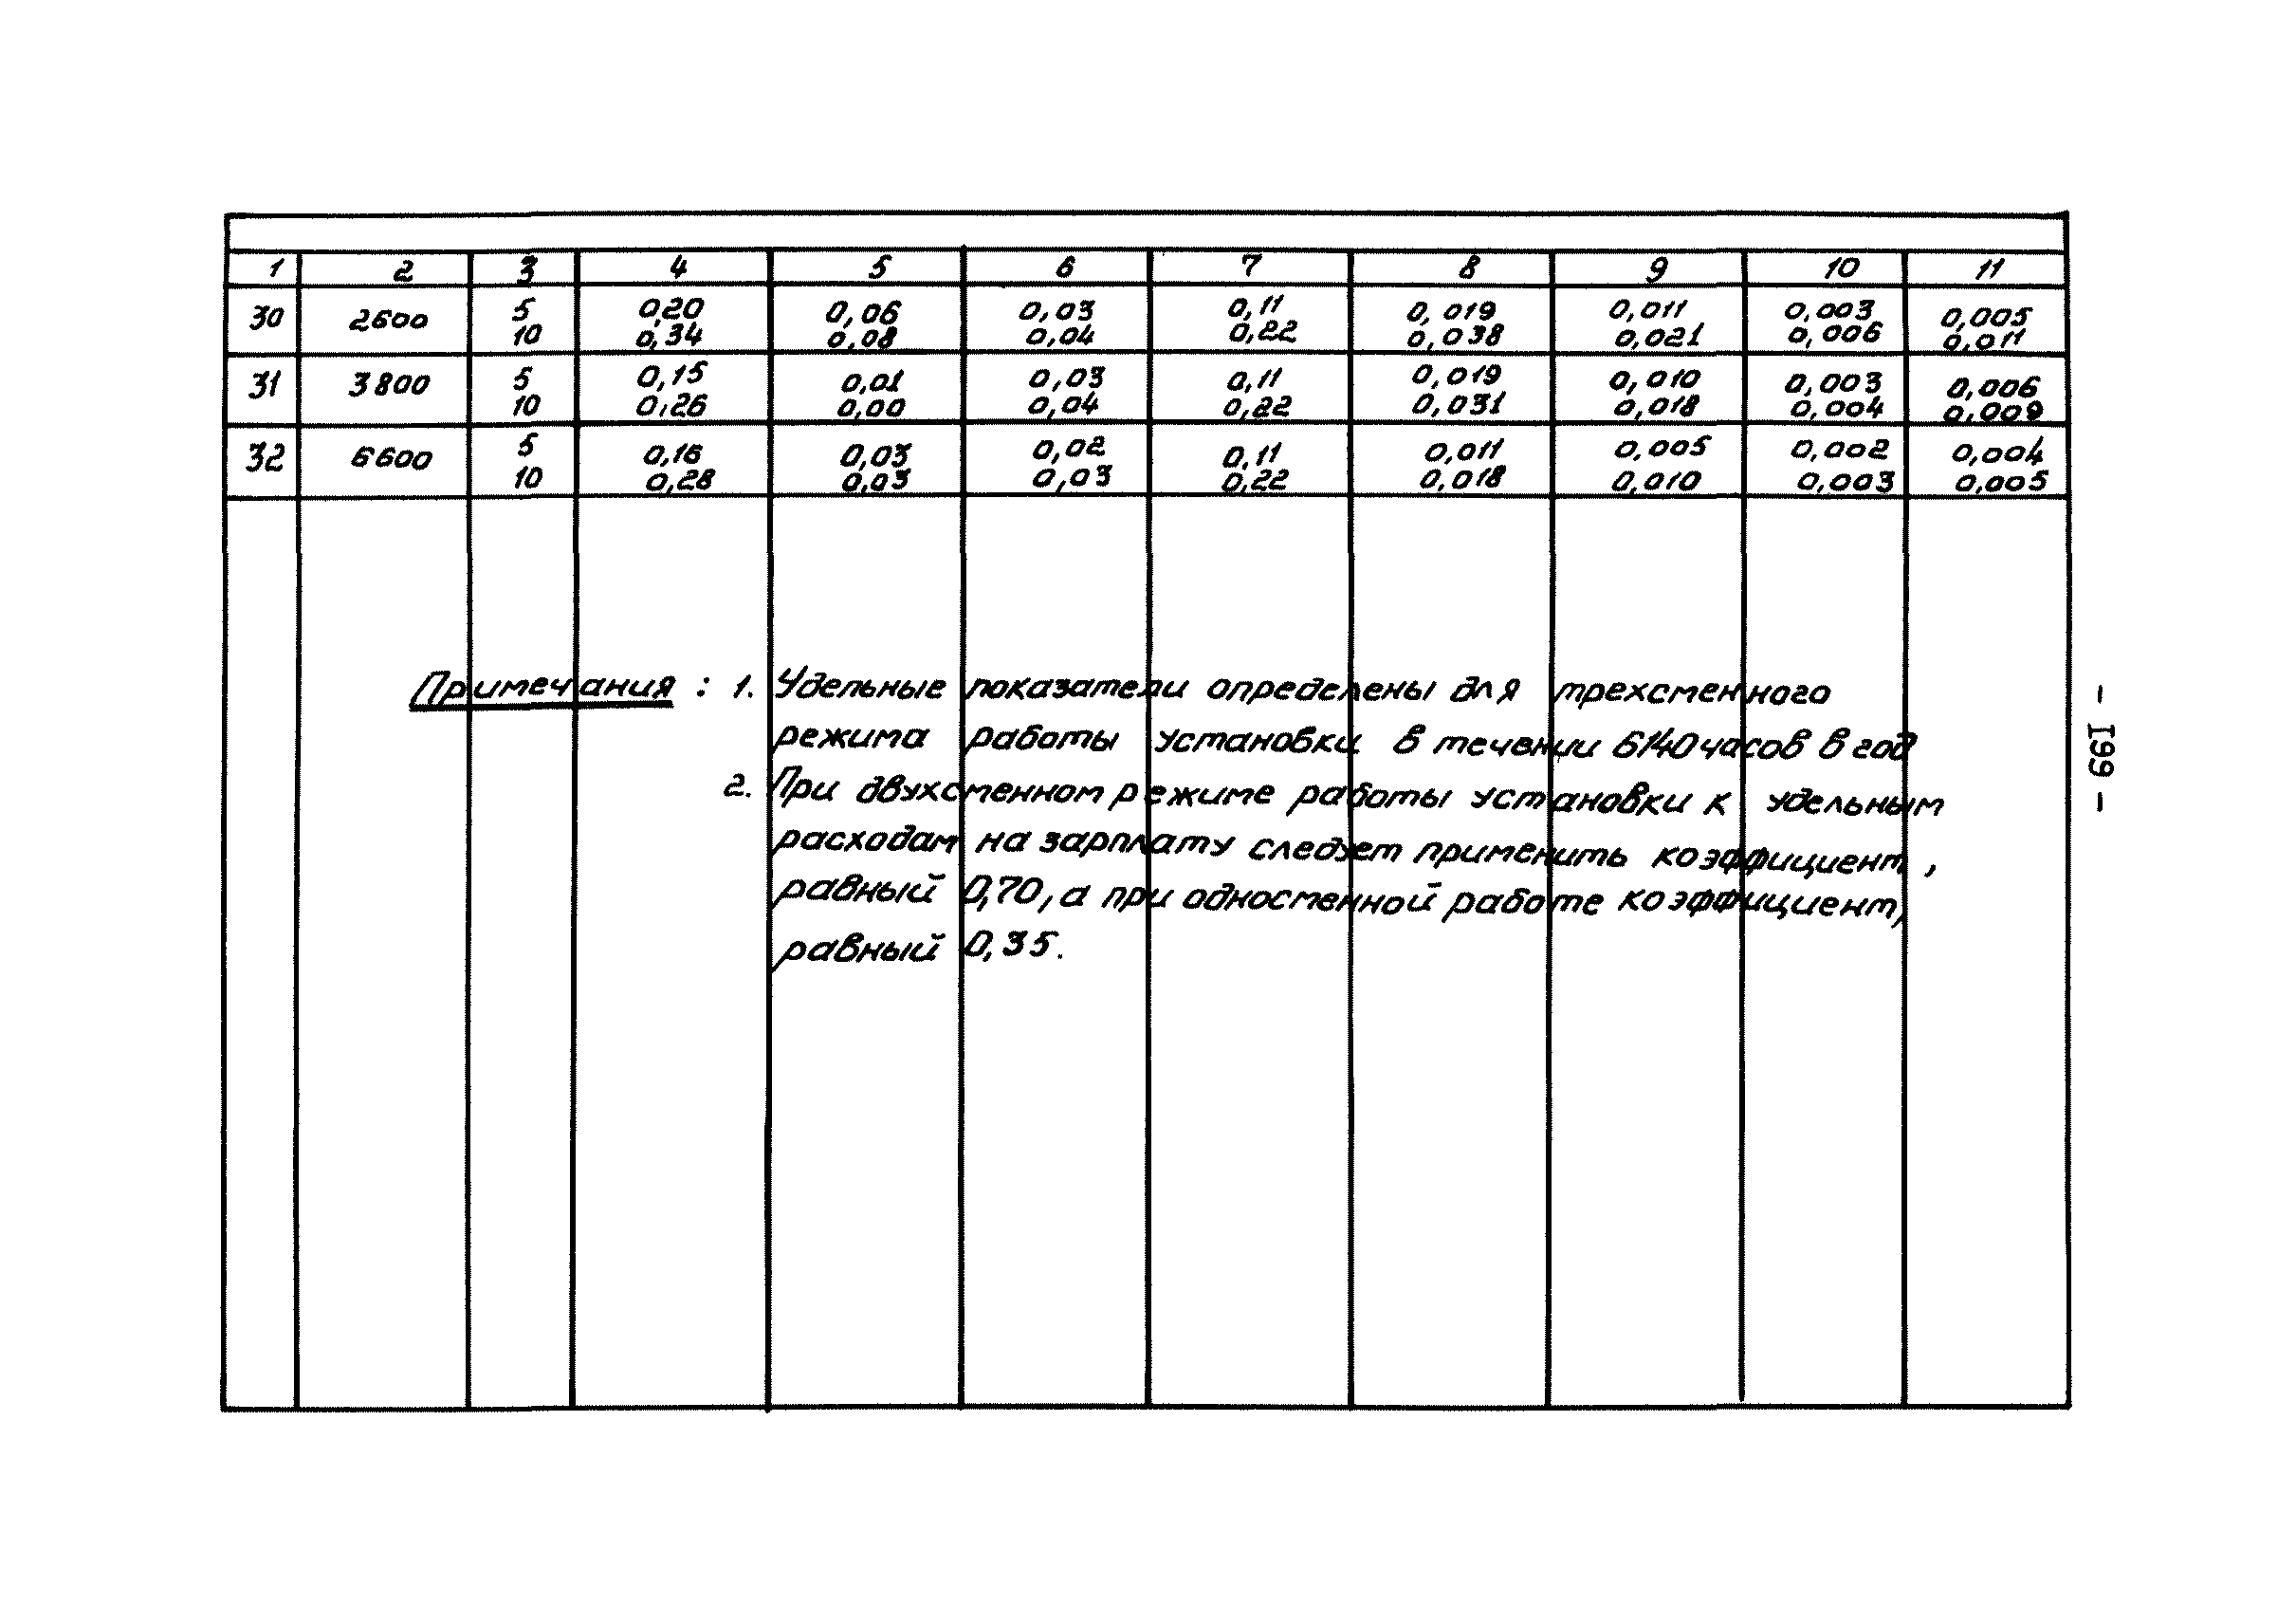 1 2 3 4 5 6 7 8 9 10 11
30 2600 5 0,20 0,06 0,03 0,11 0,019 0,011 0,003 0,005
10 0,34 0,08 0,04 0,22 0,038 0,021 0,006 0,011
31 3800 5 0,15 0,01 0,03 0,11 0,019 0,010 0,003 0,006
10 0,26 0,00 0,04 0,22 0,031 0,018 0,004 0,009
32 6600 5 0,16 0,03 0,02 0,11 0,011 0,005 0,002 0,004
10 0,28 0,03 0,03 0,22 0,018 0,010 0,003 0,005
Примечания : 1. Удельные показатели определены для трехсменного
режима работы установки в течении 6140 часов в год
2. При двухсменном режиме работы установки к удельным
расходам на зарплату следует применить коэффициент,
равный 0,70, а при односменной работе коэффициент,
равный 0,35.
- I99 -